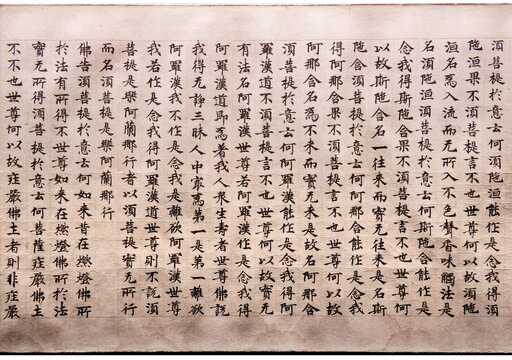 須菩提於意云何須陁洹能作是念我得須
陁洹果不須菩提言不也世尊何以故須陁
洹名爲入流而无所入不色聲香味觸法是
名須陁洹須菩提於意云何斯陁含能作是
念我得斯陁含果不須菩提言不也世尊何
以故斯陁含名一往來而實无往來是名斯
陁含須菩提於意云何阿那含能作是念我
得阿那含果不須菩提言不也世尊何以故
阿那含名爲不來而實无來是故名阿那含
須菩提於意云何阿羅漢能作是念我得阿
羅漢道不須菩提言不也世尊何以故實无
有法名阿羅漢世尊若阿羅漢作是念我得
阿羅漢道即爲著我人衆生壽者世尊佛說
我得无諍三昧人中最爲第一是第一離欲
阿羅漢我不作是念我是離欲阿羅漢世尊
我若作是念我得阿羅漢道世尊則不說須
菩提是樂阿蘭那行者以須菩提實无所行
而名須菩提是樂阿蘭那行
佛告須菩提於意云何如来昔在燃燈佛所
於法有所得不世尊如来在燃燈佛所於法
實无所得須菩提於意云何菩薩莊嚴佛土
不不也世尊何以故莊嚴佛土者則非莊嚴